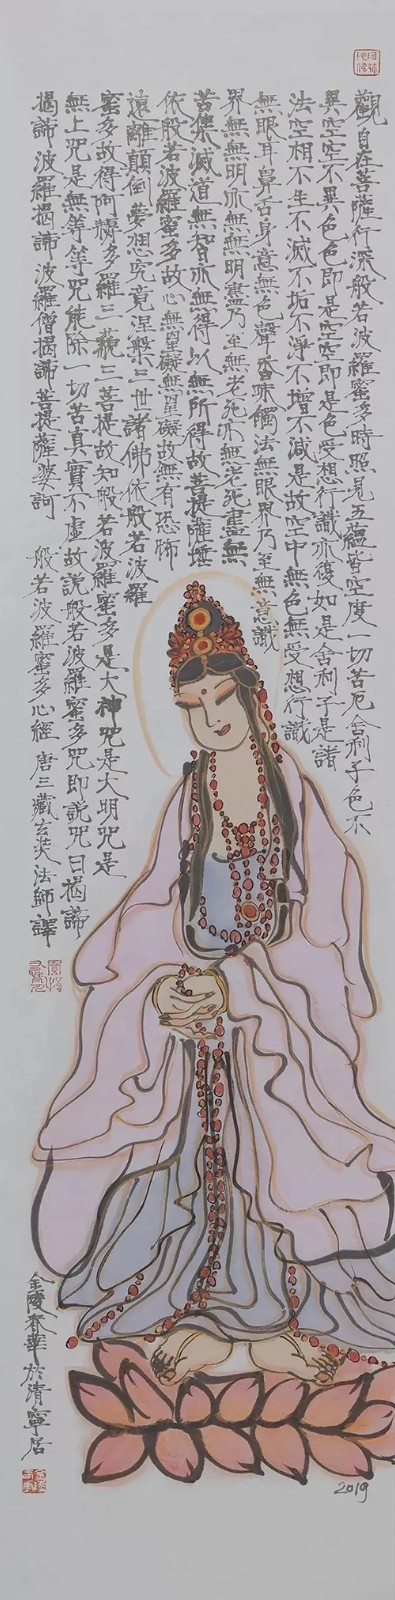 觀自在菩薩行深般若波羅蜜多時照見五蘊皆空度一切苦厄舍利子色不
異空空不異色色即是空空即是色受想行識亦復如是舍利子是諸
法空相不生不滅不垢不淨不增不減是故空中無色無受想行識
無眼耳鼻舌身意無色聲香味觸法無眼界乃至無意識
界無無明亦無無明盡乃至無老死亦無老死盡無
苦集滅道無智亦無得以無所得故菩提薩埵
依般若波羅蜜多故心無罣礙無罣礙故無有恐怖
遠離顛倒夢想究竟涅槃三世諸佛依般若波羅
蜜多故得阿耨多羅三藐三菩提故知般若波羅蜜多是大神咒是大明咒是
無上咒是無等等咒能除一切苦真實不虛故說般若波羅蜜多咒即說咒曰揭諦
揭諦波羅揭諦波羅僧揭諦菩提薩婆訶 般若波羅蜜多心經 唐三藏玄奘法師譯
金陵春華於清寧居
2019